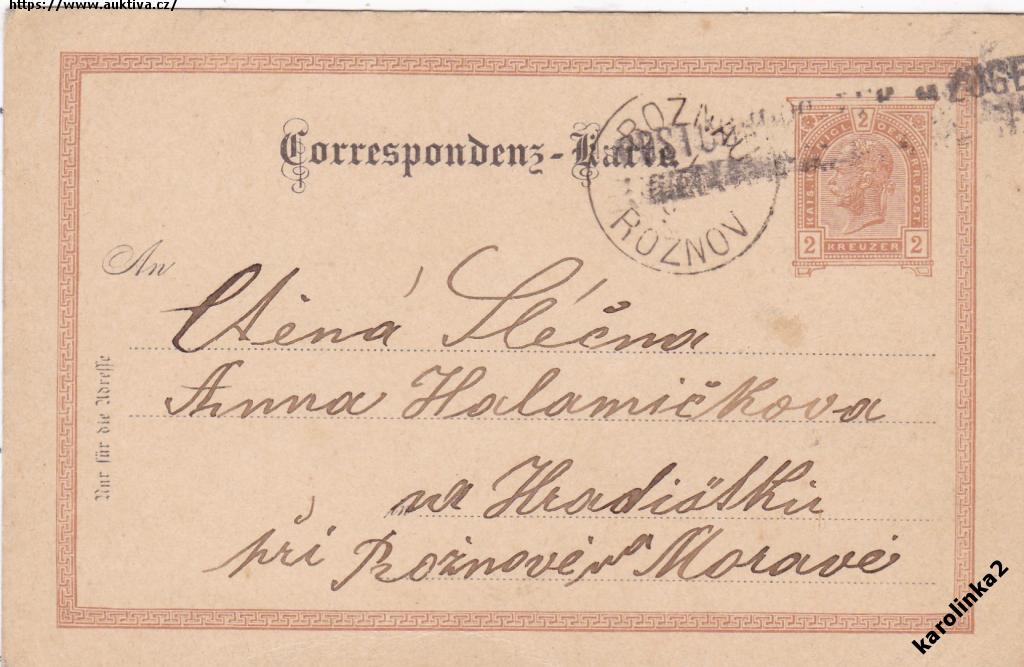 https://www.auktiva.cz/
Correspondenz-Karte
ROZNAU
ROŽNOV
2
KAIS. KÖNIGL. OESTERR. POST
2 KREUZER 2
An
Ctěná Slečna
Anna Halamičkova
na Hradištku
při Rožnově na Moravě
Nur für die Adresse
karolinka2